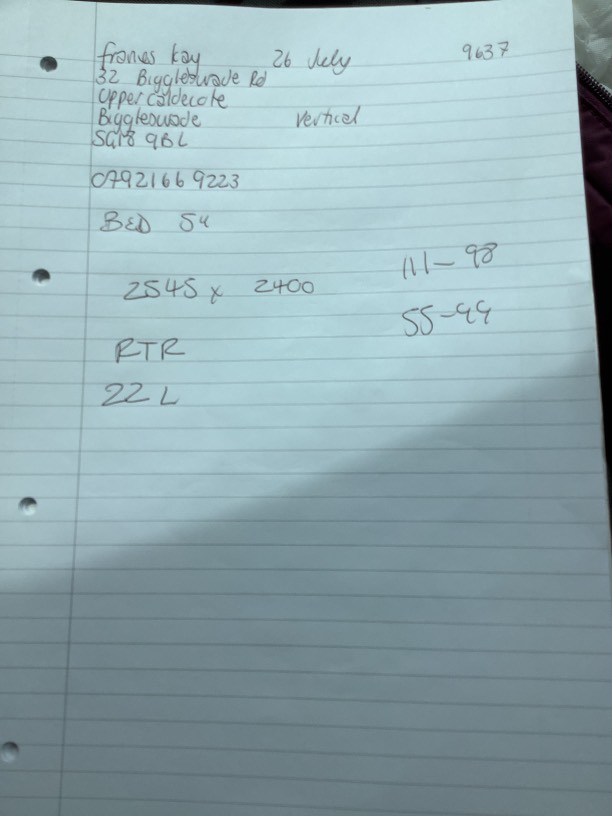 Frances Kay 26 July 9637
32 Biggleswade Rd
Upper Caldecote
Biggleswade Vertical
SG18 9BL
07921669223
BED 5"
2545 x 2400 111-98
55-99
RTR
22 L